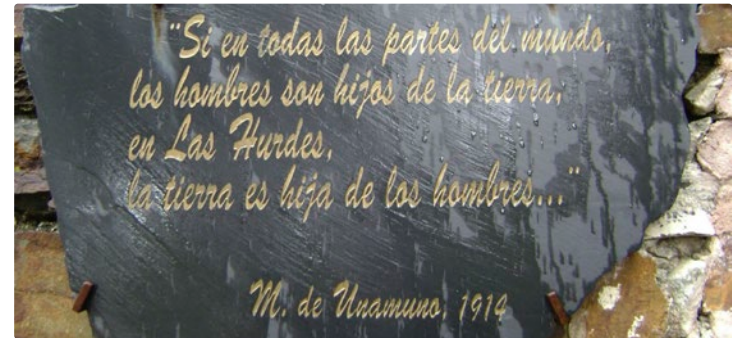 "Si en todas las partes del mundo,
los hombres son hijos de la tierra,
en Las Hurdes,
la tierra es hija de los hombres..."
M. de Unamuno, 1914